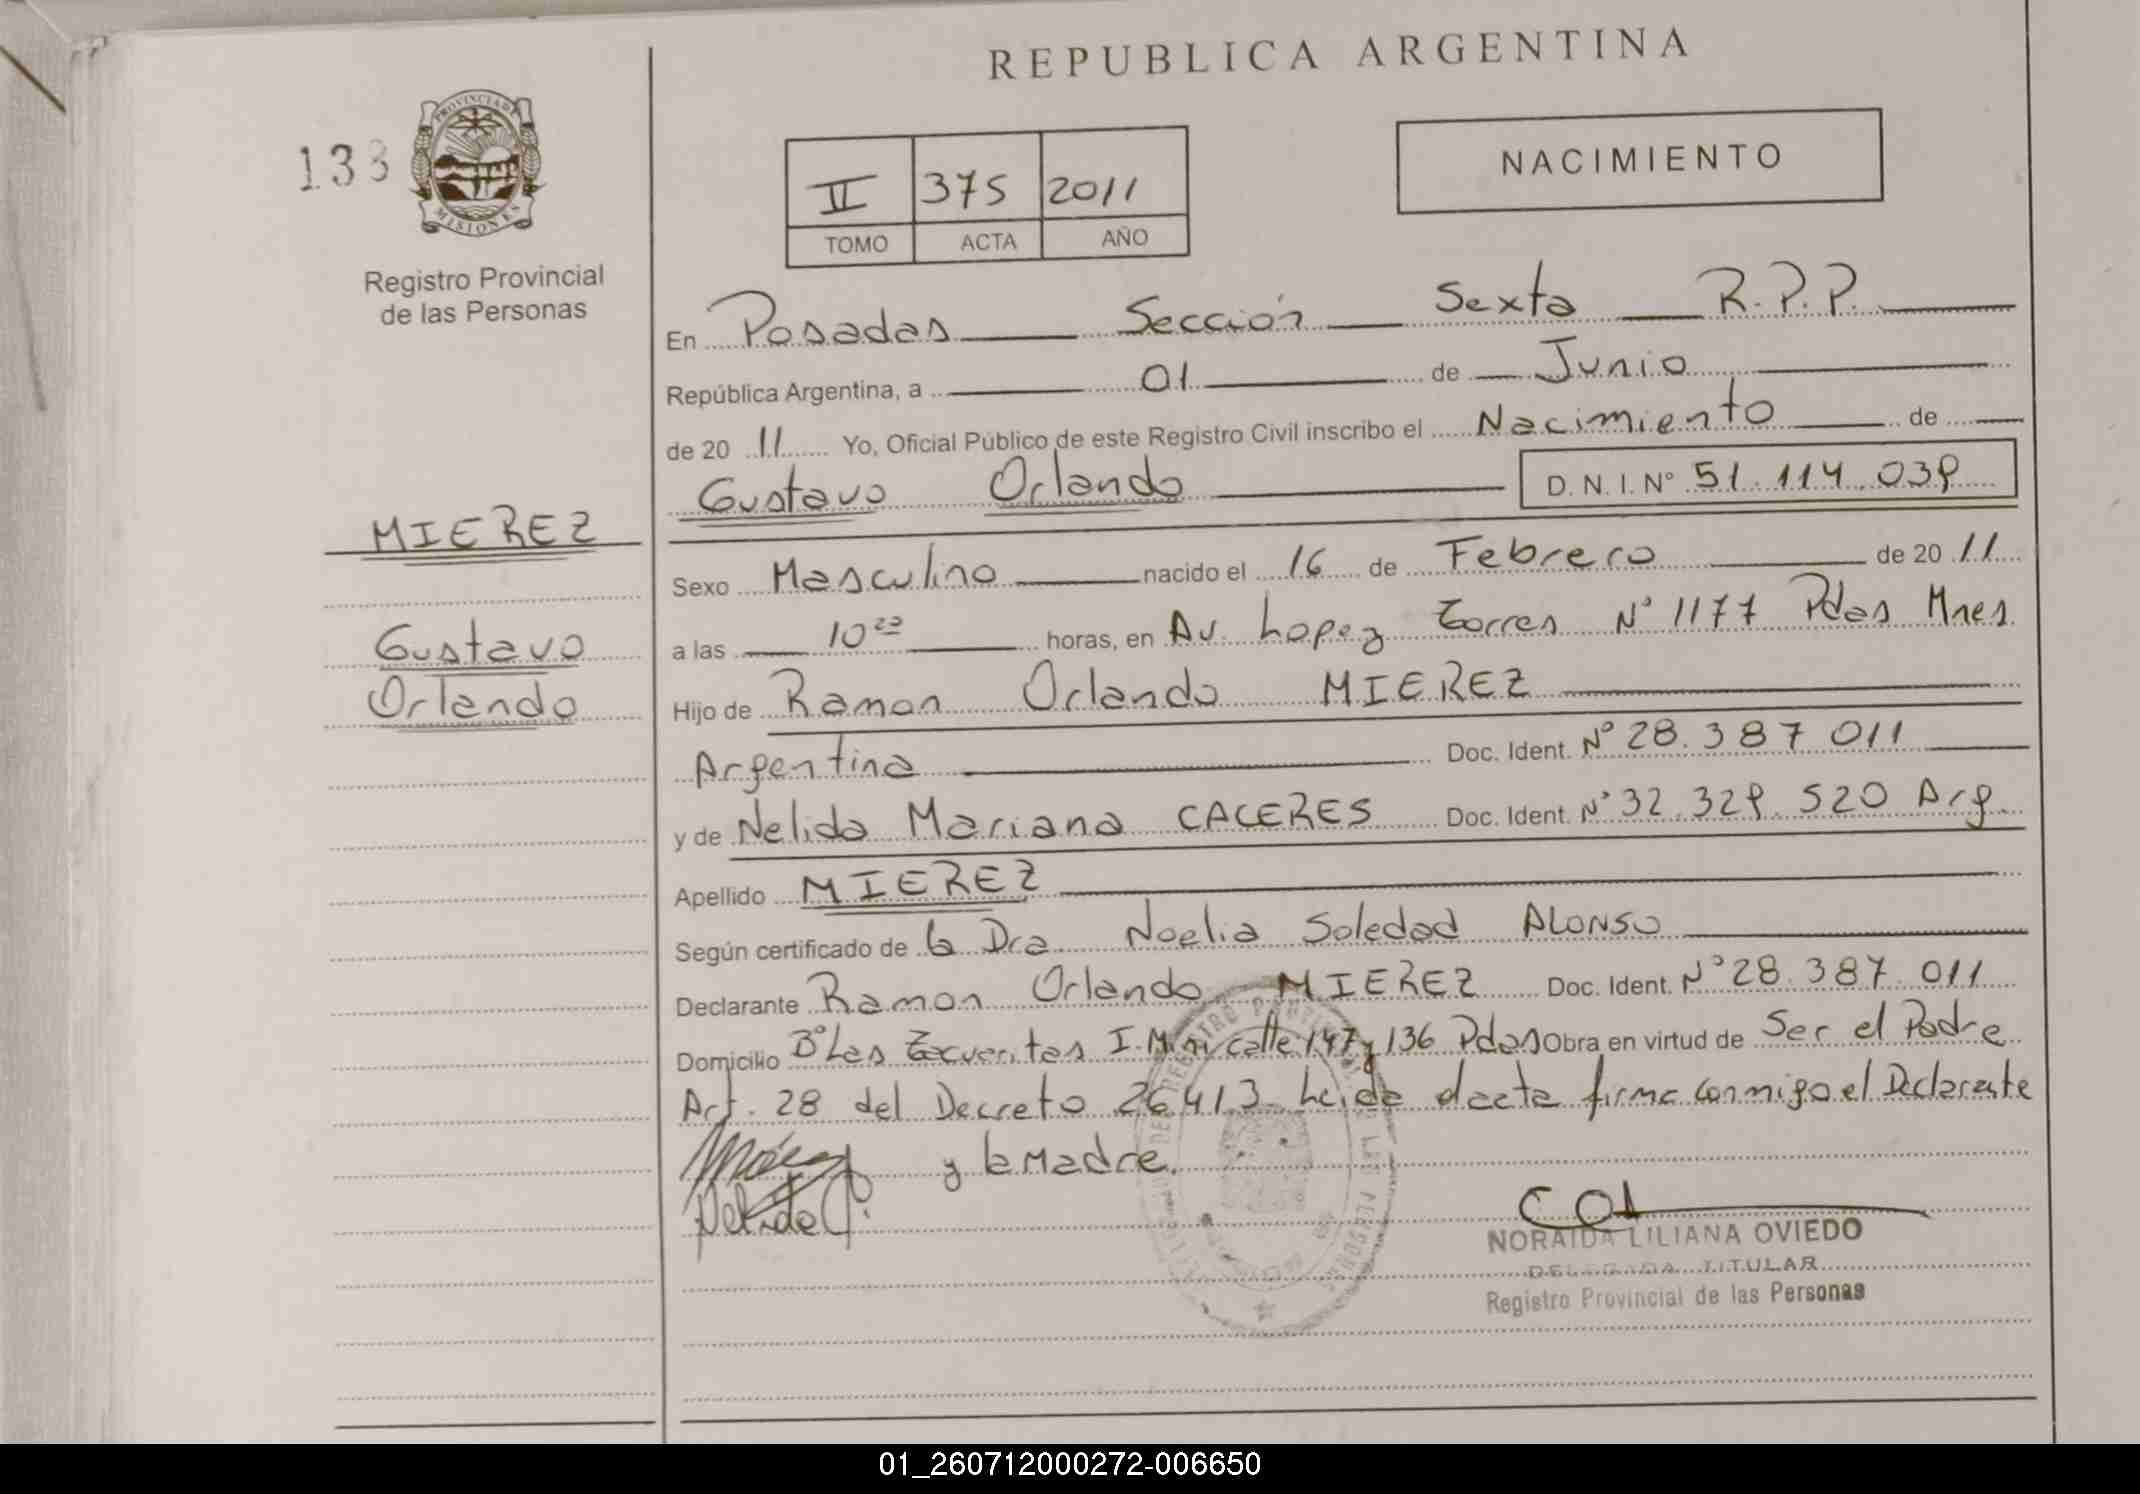 REPUBLICA ARGENTINA
133
PROVINCIA DE
MISIONES
Registro Provincial
de las Personas
II 375 2011
TOMO ACTA AÑO
NACIMIENTO
En Posadas Sección Sexta R.P.P.
República Argentina, a 01 de Junio
de 20 11 Yo, Oficial Público de este Registro Civil inscribo el Nacimiento de
Gustavo Orlando D.N.I. Nº 51.114.039
MIEREZ
Gustavo
Orlando
Sexo Masculino nacido el 16 de Febrero de 20 11
a las 10 horas, en Av. Lopez Torres Nº 1177 Pdas Mnes.
Hijo de Ramon Orlando MIEREZ
Argentina Doc. Ident. Nº 28.387.011
y de Nelida Mariana CACERES Doc. Ident. Nº 32.329.520 Arg
Apellido MIEREZ
Según certificado de la Dra Noelia Soledad ALONSO
Declarante Ramon Orlando MIEREZ Doc. Ident. Nº 28.387.011
Domicilio Bº Las calle 147 y 136 Pdas Obra en virtud de Ser el Padre
Art. 28 del Decreto 26413 Leida dacta firma conmigo el Declarante
y la Madre.
Nelida C.
NORAIDA LILIANA OVIEDO
DELEGADA TITULAR
Registro Provincial de las Personas
01_260712000272-006650